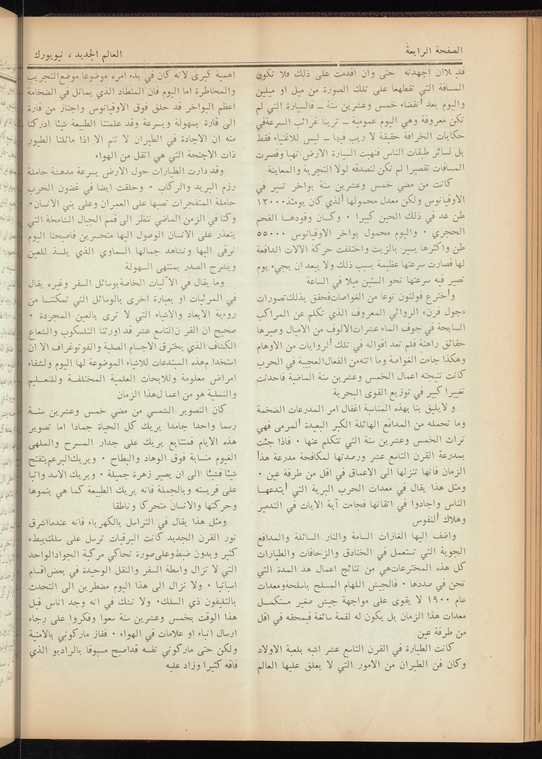 الصفحة الرابعة
العالم الجديد ، نيويورك
فد بلان اجهدته حتى وان اقدمت على ذلك فلا تكون
المسافة التي تقطعها على تلك الصورة من ميل او ميلين
واليوم بعد انقضاء خمس وعشرين سنة ـ فالسيارة التي لم
تكن معروفة وهي اليوم عمومية ـ ترينا غرائب السرعة في
حكايات الخرافة حقيقة لا ريب فيها ـ ليس للاغنياء فقط
بل لسائر طبقات الناس فنهبت السيارة الارض نهبا وقصرت
المسافات تقصيرا لم نكن لنصدقه لولا التجربة والمعاينة
كانت من مضي خمس وعشرين سنة بواخر تسير في
الاوقيانوس ولكن معدل محمولها الذي كان يومئذ ١٢٠٠٠
طن عد في ذلك الحين كبيرا ٠ وكان وقودها الفحم
الحجري ٠ واليوم محمول بواخر الاوقيانوس ٥٥٠٠٠
طن واكثرها يسير بالزيت واختلفت حركة الالات الدافعة
لها فصارت سرعتها عظيمة بسبب ذلك ولا يبعد ان يجيء يوم
تصير فيه سرعتها نحو الستين ميلا في الساعة
واخترع فولتون نوعا من الغواصات فحقق بذلك تصورات
«جول فرن» الروائي المعروف الذي تكلم عن المراكب
السابحة في جوف الماء عشرات الالوف من الاميال وصيرها
حقائق راهنة فلم تعد اقواله في تلك الروايات من الاوهام
وهكذا جاءت الغواصة وما اتته من الفعال العجيبة في الحرب
كانت نتيجته اعمال الخمس وعشرين سنة الماضية فاحدثت
تغييرا كبيرا في توزيع القوى البحرية
ولا يليق بنا بهذه المناسبة اغفال امر المدرعات الضخمة
وما تحمله من المدافع الهائلة الكبر البعيدة المرمى فهي
تراث الخمس وعشرين سنة التي نتكلم عنها ٠ فاذا جئت
بمدرعة القرن التاسع عشر ورصدتها لمكافحة مدرعة هذا
الزمان فانها تنزلها الى الاعماق في اقل من طرفة عين ٠
ومثل هذا يقال في معدات الحرب البرية التي ابتدعها
الناس واجادوا في اتقانها فجاءت آية الايات في التدمير
وهلاك النفوس
واضف اليها الغازات السامة والنار السائلة والمدافع
الجوية التي تستعمل في الخنادق والزحافات والطيارات
كل هذه المخترعات هي من نتائج اعمال هذ المدة التي
نحن في صددها ٠ فالجيش اللهام المسلح باسلحة ومعدات
عام ١٩٠٠ لا يقوى على مواجهة جيش صغير مستكمل
معدات هذا الزمان بل يكون له لقمة سائغة فيمحقه في اقل
من طرفة عين
كانت الطيارة في القرن التاسع عشر اشبه بلعبة الاولاد
وكان فن الطيران من الامور التي لا يعلق عليها العالم
اهمية كبرى لانه كان في بدء امره موضوعا موضع التجريب
والمخاطرة اما اليوم فان المنطاد الذي يماثل في الضخامة
اعظم البواخر قد حلق فوق الاوقيانوس واجتاز من قارة
الى قارة بسهولة وبسرعة وقد علمتنا الطبيعة شيئا ادركنا
منه ان الاجادة في الطيران لا تتم الا اذا ماثلنا الطيور
ذات الاجنحة التي هي اثقل من الهواء
وقد دارت الطيارات حول الارض بسرعة مدهشة حاملة
رزم البريد والركاب ٠ وحلقت ايضا في غضون الحرب
حاملة المتفجرات تصبها على العمران وعلى بني الانسان ٠
وكنا في الزمن الماضي ننظر الى قمم الجبال الشامخة التي
يتعذر على الانسان الوصول اليها متحسرين فاصبحنا اليوم
نرقى اليها ونشاهد جمالها السماوي الذي يلذ للعين
وينشرح الصدر بمنتهى السهولة
وما يقال في الآليات الخاصة بوسائل السفر وغيره يقال
في المرئيات او بعبارة اخرى بالوسائل التي تمكننا من
روية الابعاد والاشياء التي لا ترى بالعين المجردة ٠
صحيح ان القرن التاسع عشر قد اورثنا التلسكوب والشعاع
الكشاف الذي يخترق الاجسام الصلبة والفوتوغراف الا ان
استخدام هذه المبتدعات للاشياء الموضوعة لها اليوم ولشفاء
امراض معلومة وللابحاث العلمية المختلفة وللتعليم
والتسلية هو من اعمال هذا الزمان
كان التصوير الشمسي من مضي خمس وعشرين سنة
رسما واحدا جامدا يريك كل الحياة جمادا اما تصوير
هذه الايام فمتتابع يريك على جدار المسرح والملهى
الغيوم منسابة فوق الوهاد والبطاح ٠ ويريك البرعم يتفتح
شيئا فشيئا الى ان يصير زهرة جميلة ٠ ويريك الاسد واثبا
على فريسته وبالجملة فانه يريك الطبيعة كما هي بنموها
وحركتها والانسان متحركا وناطقا
ومثل هذا يقال في التراسل بالكهرباء فانه عندما اشرق
نور القرن الجديد كانت البرقيات ترسل على سلك ببطء
كثير وبدون ضبط وعلى صورة تحاكي مركبة الجواد الواحد
التي لا تزال واسطة السفر والنقل الوحيدة في بعض اقسام
اسبانيا ٠ ولا نزال الى هذا اليوم مضطرين الى التحدث
بالتليفون ذي السلك ٠ ولا نشك في انه وجد اناس قبل
هذا الوقت بخمس وعشرين سنة سعوا وفكروا على رجاء
ارسال انباء او علامات في الهواء ٠ ففاز ماركوني بالامنية
ولكن حتى ماركوني نفسه قد اصبح مسبوقا بالراديو الذي
فاقه كثيرا وزاد عليه